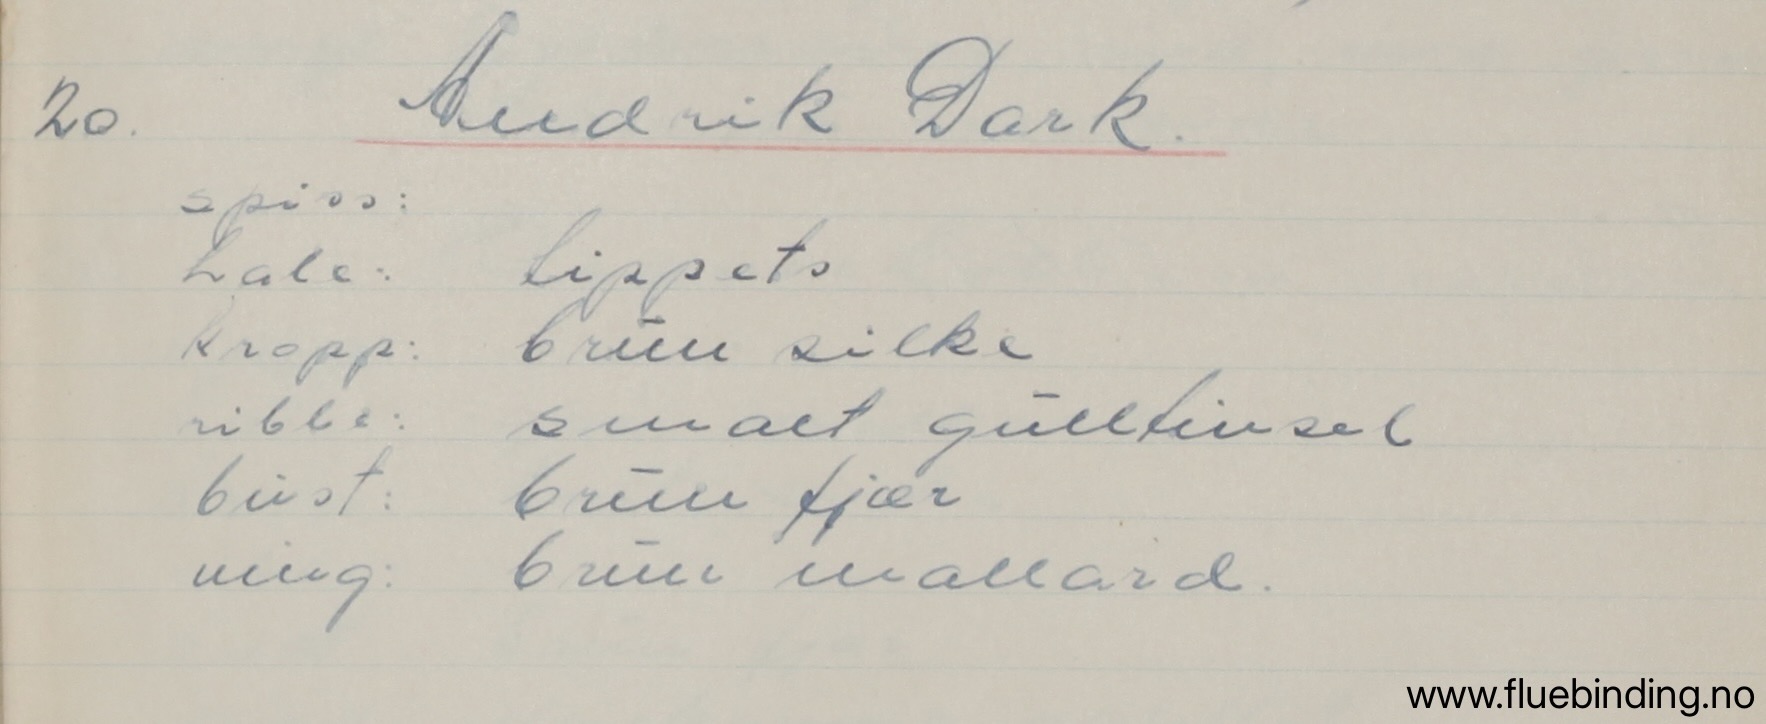 20. Andrik Dark.
spiss:
hale: tippets
kropp: brun silke
ribbe: smalt gulltinsel
bust: brun fjær
ving: brun mallard.
www.fluebinding.no